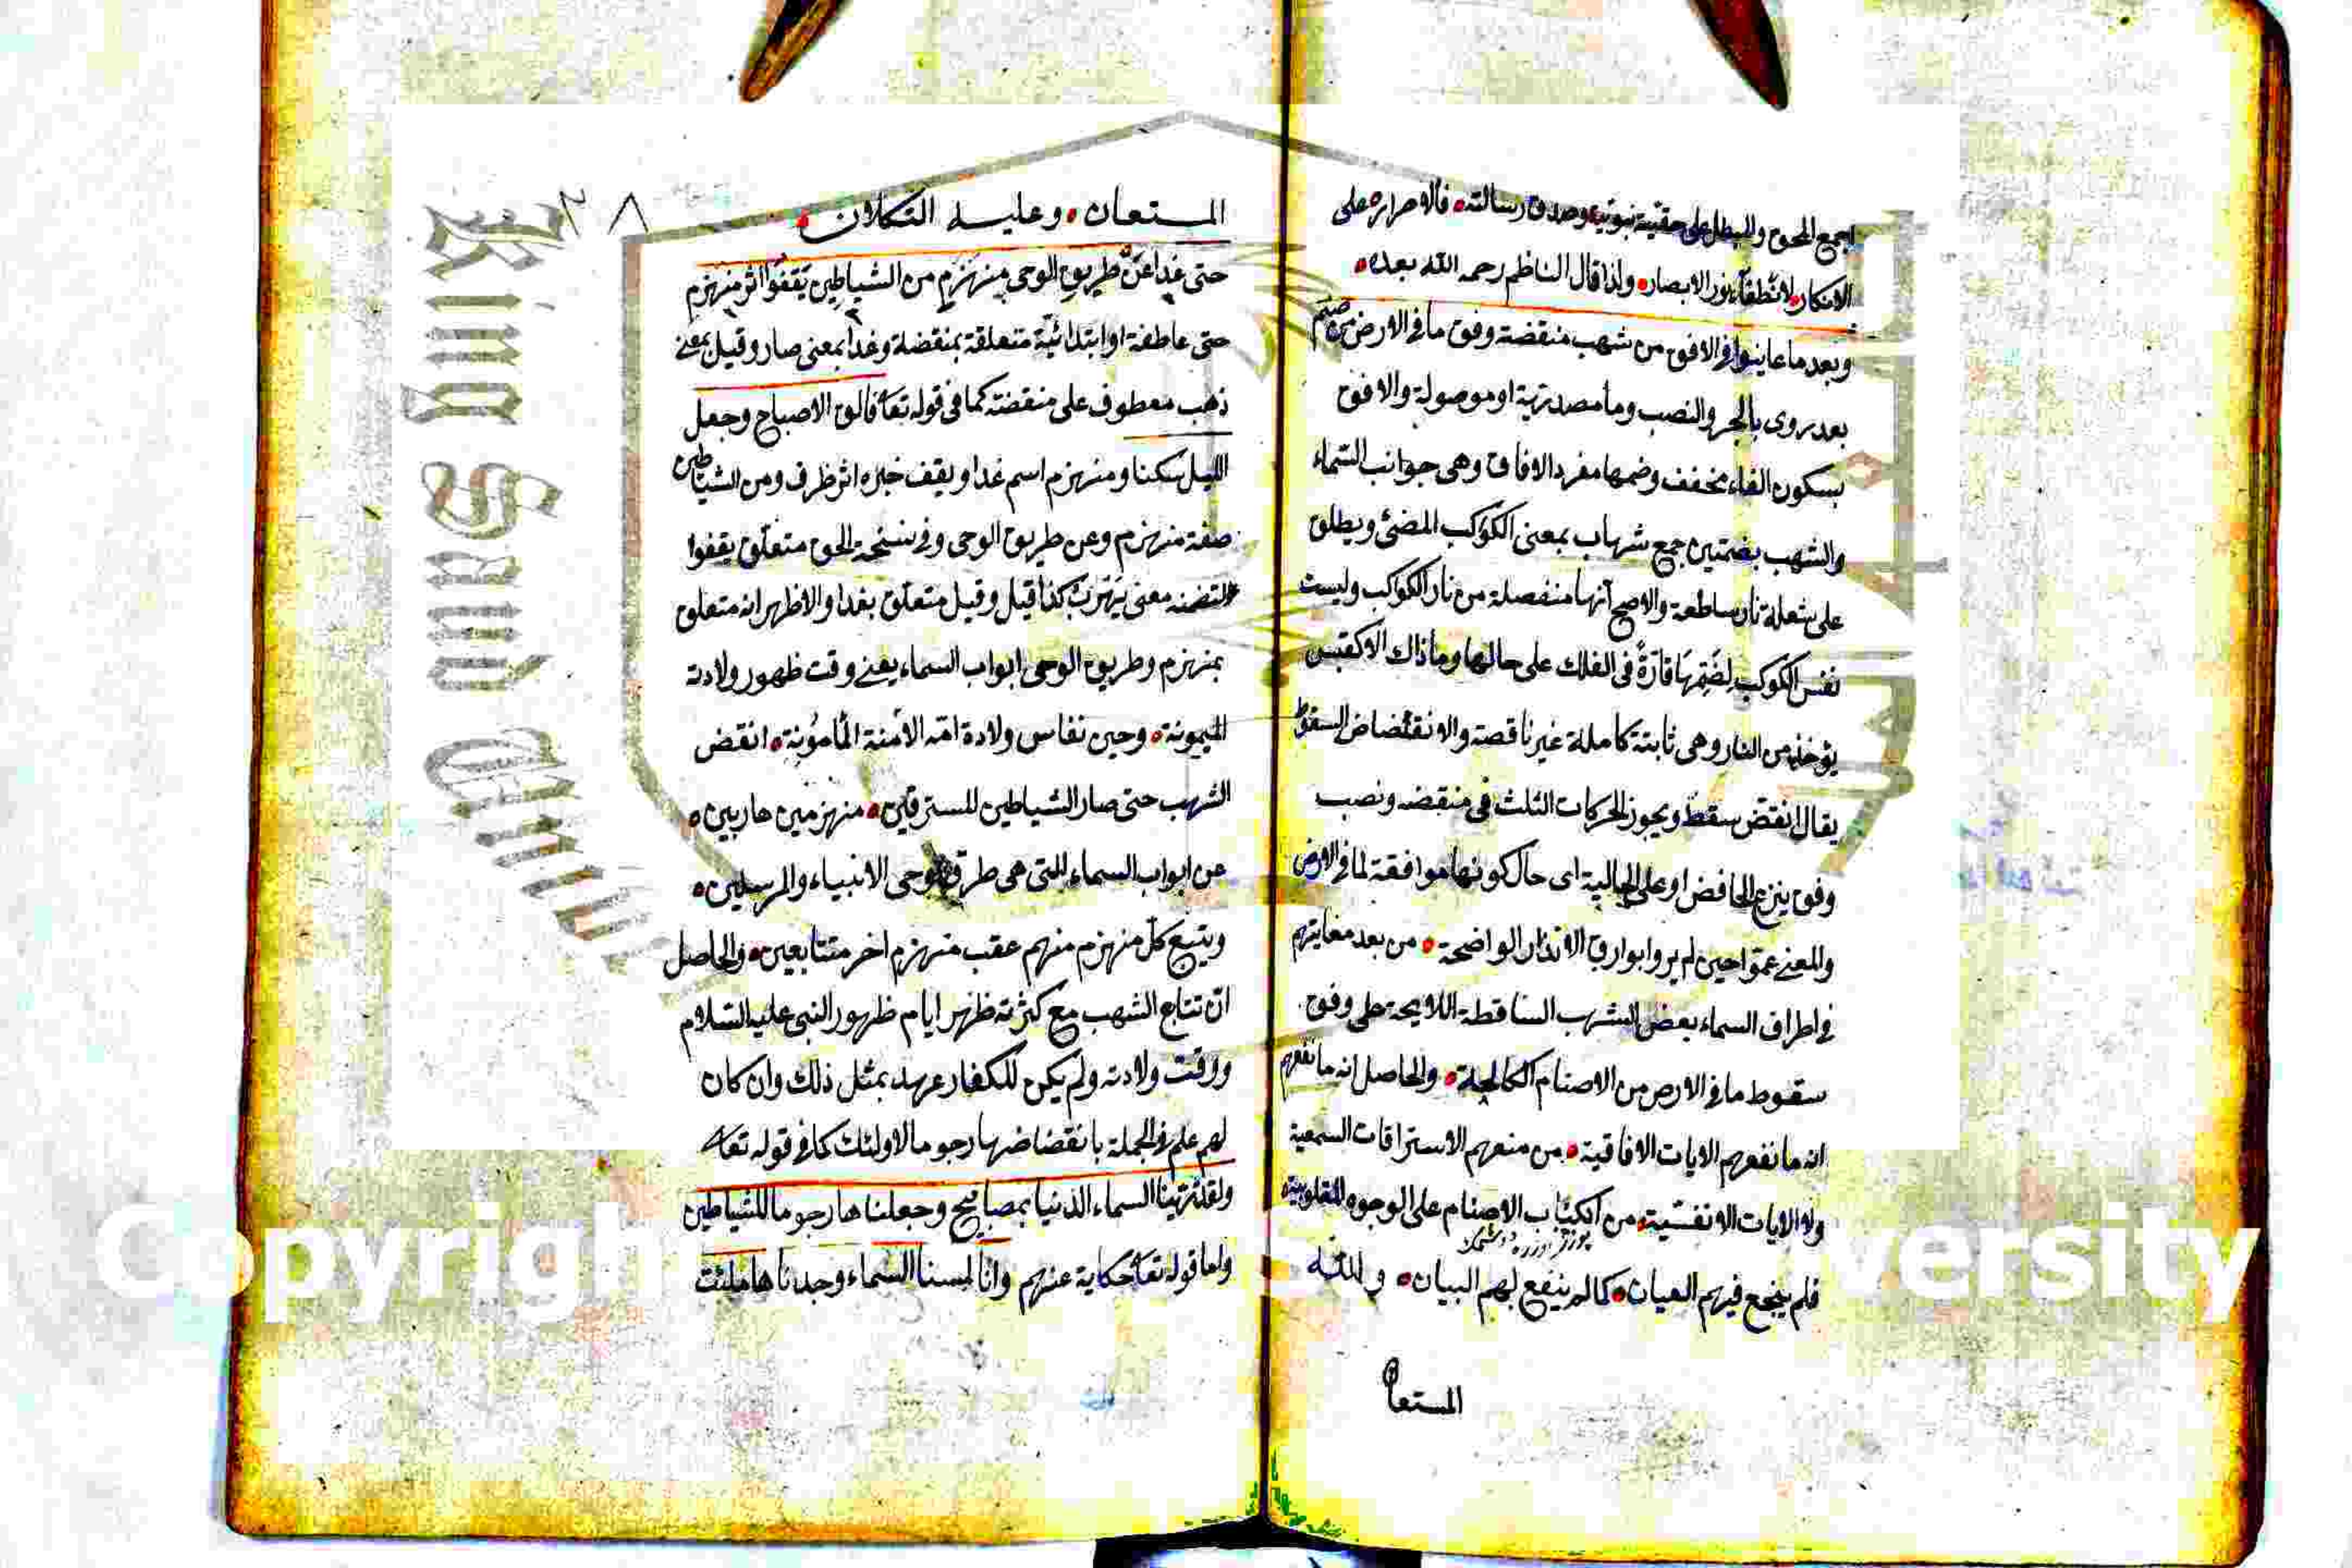 اجمع المحق والمبطل على حقية نبوته وصدق رسالته فالاصرار على
الانكار لانطفاء نور الابصار ولذا قال الناظم رحمه الله بعده
وبعد ما عاينوا في الافق من شهب منقضة وفق ما في الارض من صنم
بعد روى بالجر والنصب وما مصدرية او موصولة والافق
بسكون الفاء مخفف وضمها مفرد الافاق وهى جوانب السماء
والشهب بضمتين جمع شهاب بمعنى الكوكب المضئ ويطلق
على شعلة نار ساطعة والاصح انها منفصلة من نار الكواكب وليست
نفس الكوكب قارة في الفلك على حالها وما ذاك الا كقبس
يؤخذ من النار وهى ثابتة كاملة غير ناقصة والانقضاض السقوط
يقال انقض سقط ويجوز الحركات الثلث في منقضه ونصب
وفق بنزع الخافض او على الحالية اى حال كونها موافقة لما في الارض
والمعنى عموا حين لم يروا بوارق الانذار الواضحة من بعد معاينتهم
في اطراف السماء بعض الشهب الساقطة اللايحة على وفق
سقوط ما في الارض من الاصنام والحاصل انه ما نفعهم
انه ما نفعهم الايات الافاقية من منعهم الاستراقات السمعية
ولا الايات الانفسية من انكباب الاصنام على الوجوه المقلوبية
فلم ينجع فيهم العيان كما لم ينفع لهم البيان والله
المستعا
٨
المستعان وعليه التكلان
حتى غدا عن طريق الوحى منهزم من الشياطين يقفوا اثر منهزم
حتى عاطفة او ابتدائية متعلقة بمنقضة وغدا بمعنى صار وقيل بمعنى
ذهب معطوف على منقضته كما في قوله تعا فالق الاصباح وجعل
الليل سكنا ومنهزم اسم غدا ويقف خبره اثر ظرف ومن الشياطين
صفة منهزم وعن طريق الوحى وفي نسخة الحق متعلق يقفوا
لتضمنه معنى يهرب كذا قيل وقيل متعلق بغدا والاظهر انه متعلق
بمنهزم وطريق الوحى ابواب السماء يعنى وقت ظهور ولادته
الميمونة وحين نفاس ولادة امه الامنة المأمونة انقض
الشهب حتى صار الشياطين المسترقين منهزمين هاربين
عن ابواب السماء التى هى طرق وحى الانبياء والمرسلين
ويتبع كل منهزم منهم عقب منهزم اخر متتابعين والحاصل
ان تتابع الشهب مع كثرته ظهر ايام ظهور النبى عليه السلام
ووقت ولادته ولم يكن للكفار عهد بمثل ذلك وان كان
لهم علم في الجملة بانقضاضها رجوما لاولئك كما في قوله تعا
ولقد زينا السماء الدنيا بمصابيح وجعلناها رجوما للشياطين
واما قوله تعا حكاية عنهم وانا لمسنا السماء وجدناها ملئت
King Saud University
Copyrigh
versity